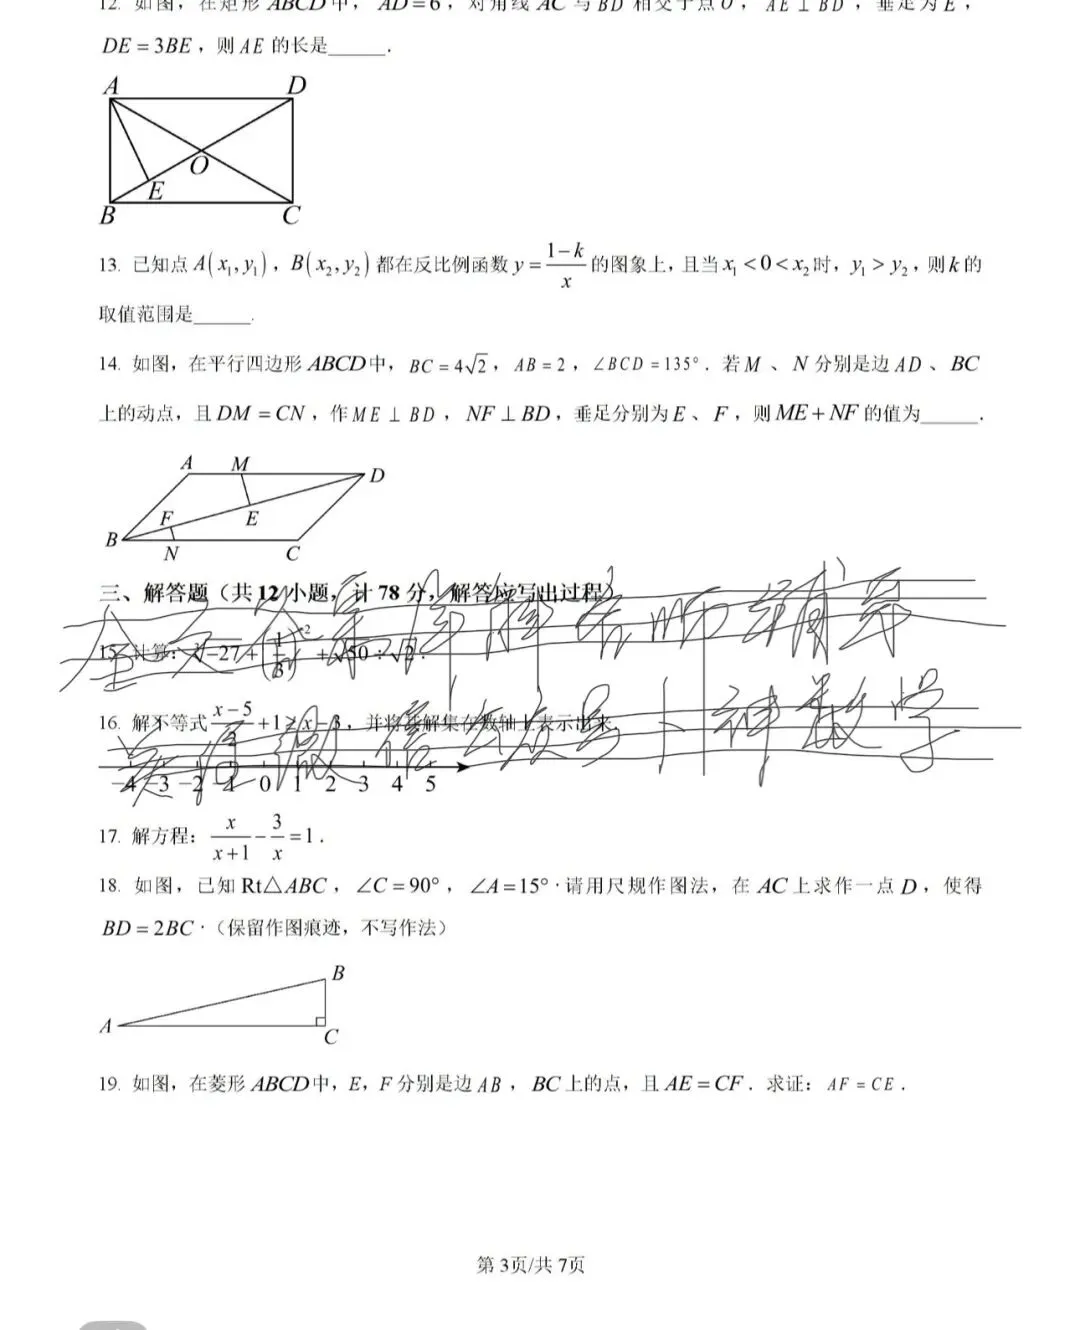 12. 如图，在矩形 ABCD 中，AD=6，对角线 AC 与 BD 相交于点 O，AE⊥BD，垂足为 E，
DE=3BE，则 AE 的长是______.
A D
O
E
B C
13. 已知点 A(x₁,y₁)，B(x₂,y₂) 都在反比例函数 y=(1-k)/x 的图象上，且当 x₁<0<x₂ 时，y₁>y₂，则 k 的
取值范围是______.
14. 如图，在平行四边形 ABCD 中，BC=4√2，AB=2，∠BCD=135°．若 M 、N 分别是边 AD 、BC
上的动点，且 DM=CN，作 ME⊥BD，NF⊥BD，垂足分别为 E 、F，则 ME+NF 的值为______.
A M D
F E
B N C
三、解答题（共 12 小题，计 78 分，解答应写出过程）
15. 计算：∛-27+(1/3)⁻²+√50÷√2.
16. 解不等式 (x-5)/2+1≥x-3，并将其解集在数轴上表示出来.
-4 -3 -2 -1 0 1 2 3 4 5
微信公众号 神数学
17. 解方程：x/(x+1)-3/x=1．
18. 如图，已知 Rt△ABC，∠C=90°，∠A=15°·请用尺规作图法，在 AC 上求作一点 D，使得
BD=2BC·（保留作图痕迹，不写作法）
B
A
C
19. 如图，在菱形 ABCD 中，E，F 分别是边 AB，BC 上的点，且 AE=CF．求证：AF=CE．
第 3页/共 7页